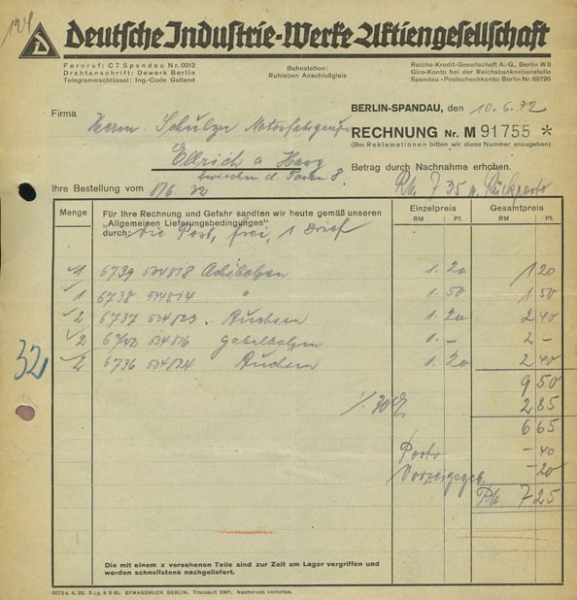 Deutsche Industrie-Werke Aktiengesellschaft
Fernruf: C 7 Spandau Nr. 0012
Drahtanschrift: Dewerk Berlin
Telegrammschlüssel: Ing.-Code Galland
Bahnstation:
Ruhleben Anschlußgleis
Reichs-Kredit-Gesellschaft A.-G., Berlin W 8
Giro-Konto bei der Reichsbanknebenstelle
Spandau • Postscheckkonto: Berlin Nr. 69795
Firma
Herrn. Schulze
BERLIN-SPANDAU, den 10.6.32
RECHNUNG Nr. M 91755 *
(Bei Reklamationen bitten wir diese Nummer anzugeben)
Ellrich a Harz
Betrag durch Nachnahme erhoben.
Ihre Bestellung vom 8/6.32
Menge
Für Ihre Rechnung und Gefahr sandten wir heute gemäß unseren
„Allgemeinen Lieferungsbedingungen"
durch: die Post, frei, 1 Brief
Einzelpreis
RM Pf.
Gesamtpreis
RM Pf.
1 6739 534818 1.20 1 20
1 6738 534814 " 1.50 1 50
2 6737 534823 Buchsen 1.20 2 40
2 Gabelbolzen 1.- 2 -
2 6736 534824 Buchsen 1.20 2 40
32
9 50
2 85
6 65
Porto - 40
Vorzeigegeb. - 20
RM 7 25
Die mit einem x versehenen Teile sind zur Zeit am Lager vergriffen und
werden schnellstens nachgeliefert.